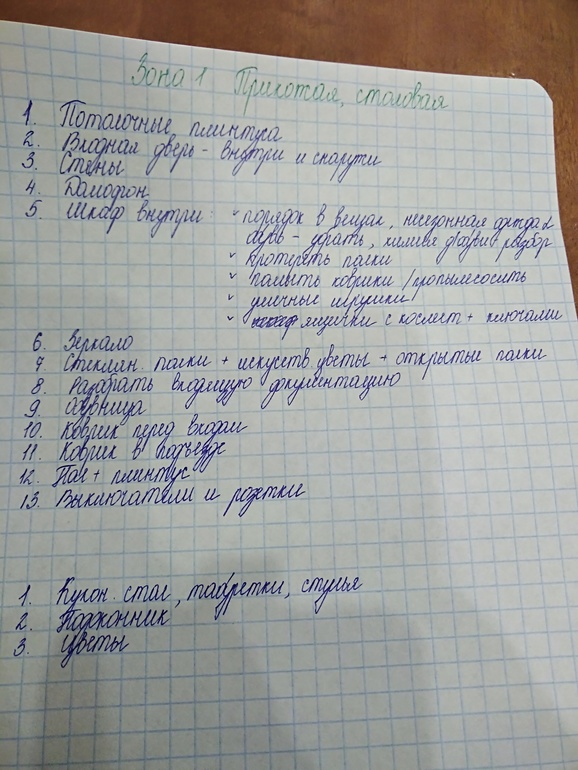 Зона 1 Прихожая, столовая
1. Потолочные плинтуса
2. Входная дверь - внутри и снаружи
3. Стены
4. Домофон
5. Шкаф внутри: ˅ порядок в вещах, несезонная одежда и
обувь - убрать, химия д/обуви разбор
˅ протереть полки
˅ помыть коврики / пропылесосить
˅ уличные игрушки
˅ ящички с космет + ключами
6. Зеркало
7. Стеклян. полки + искусств цветы + открытые полки
8. Разобрать входящую документацию
9. Обувница
10. Коврик перед входом
11. Коврик в подъезде
12. Пол + плинтус
13. Выключатели и розетки
1. Кухон. стол, табуретки, стулья
2. Подоконник
3. Цветы